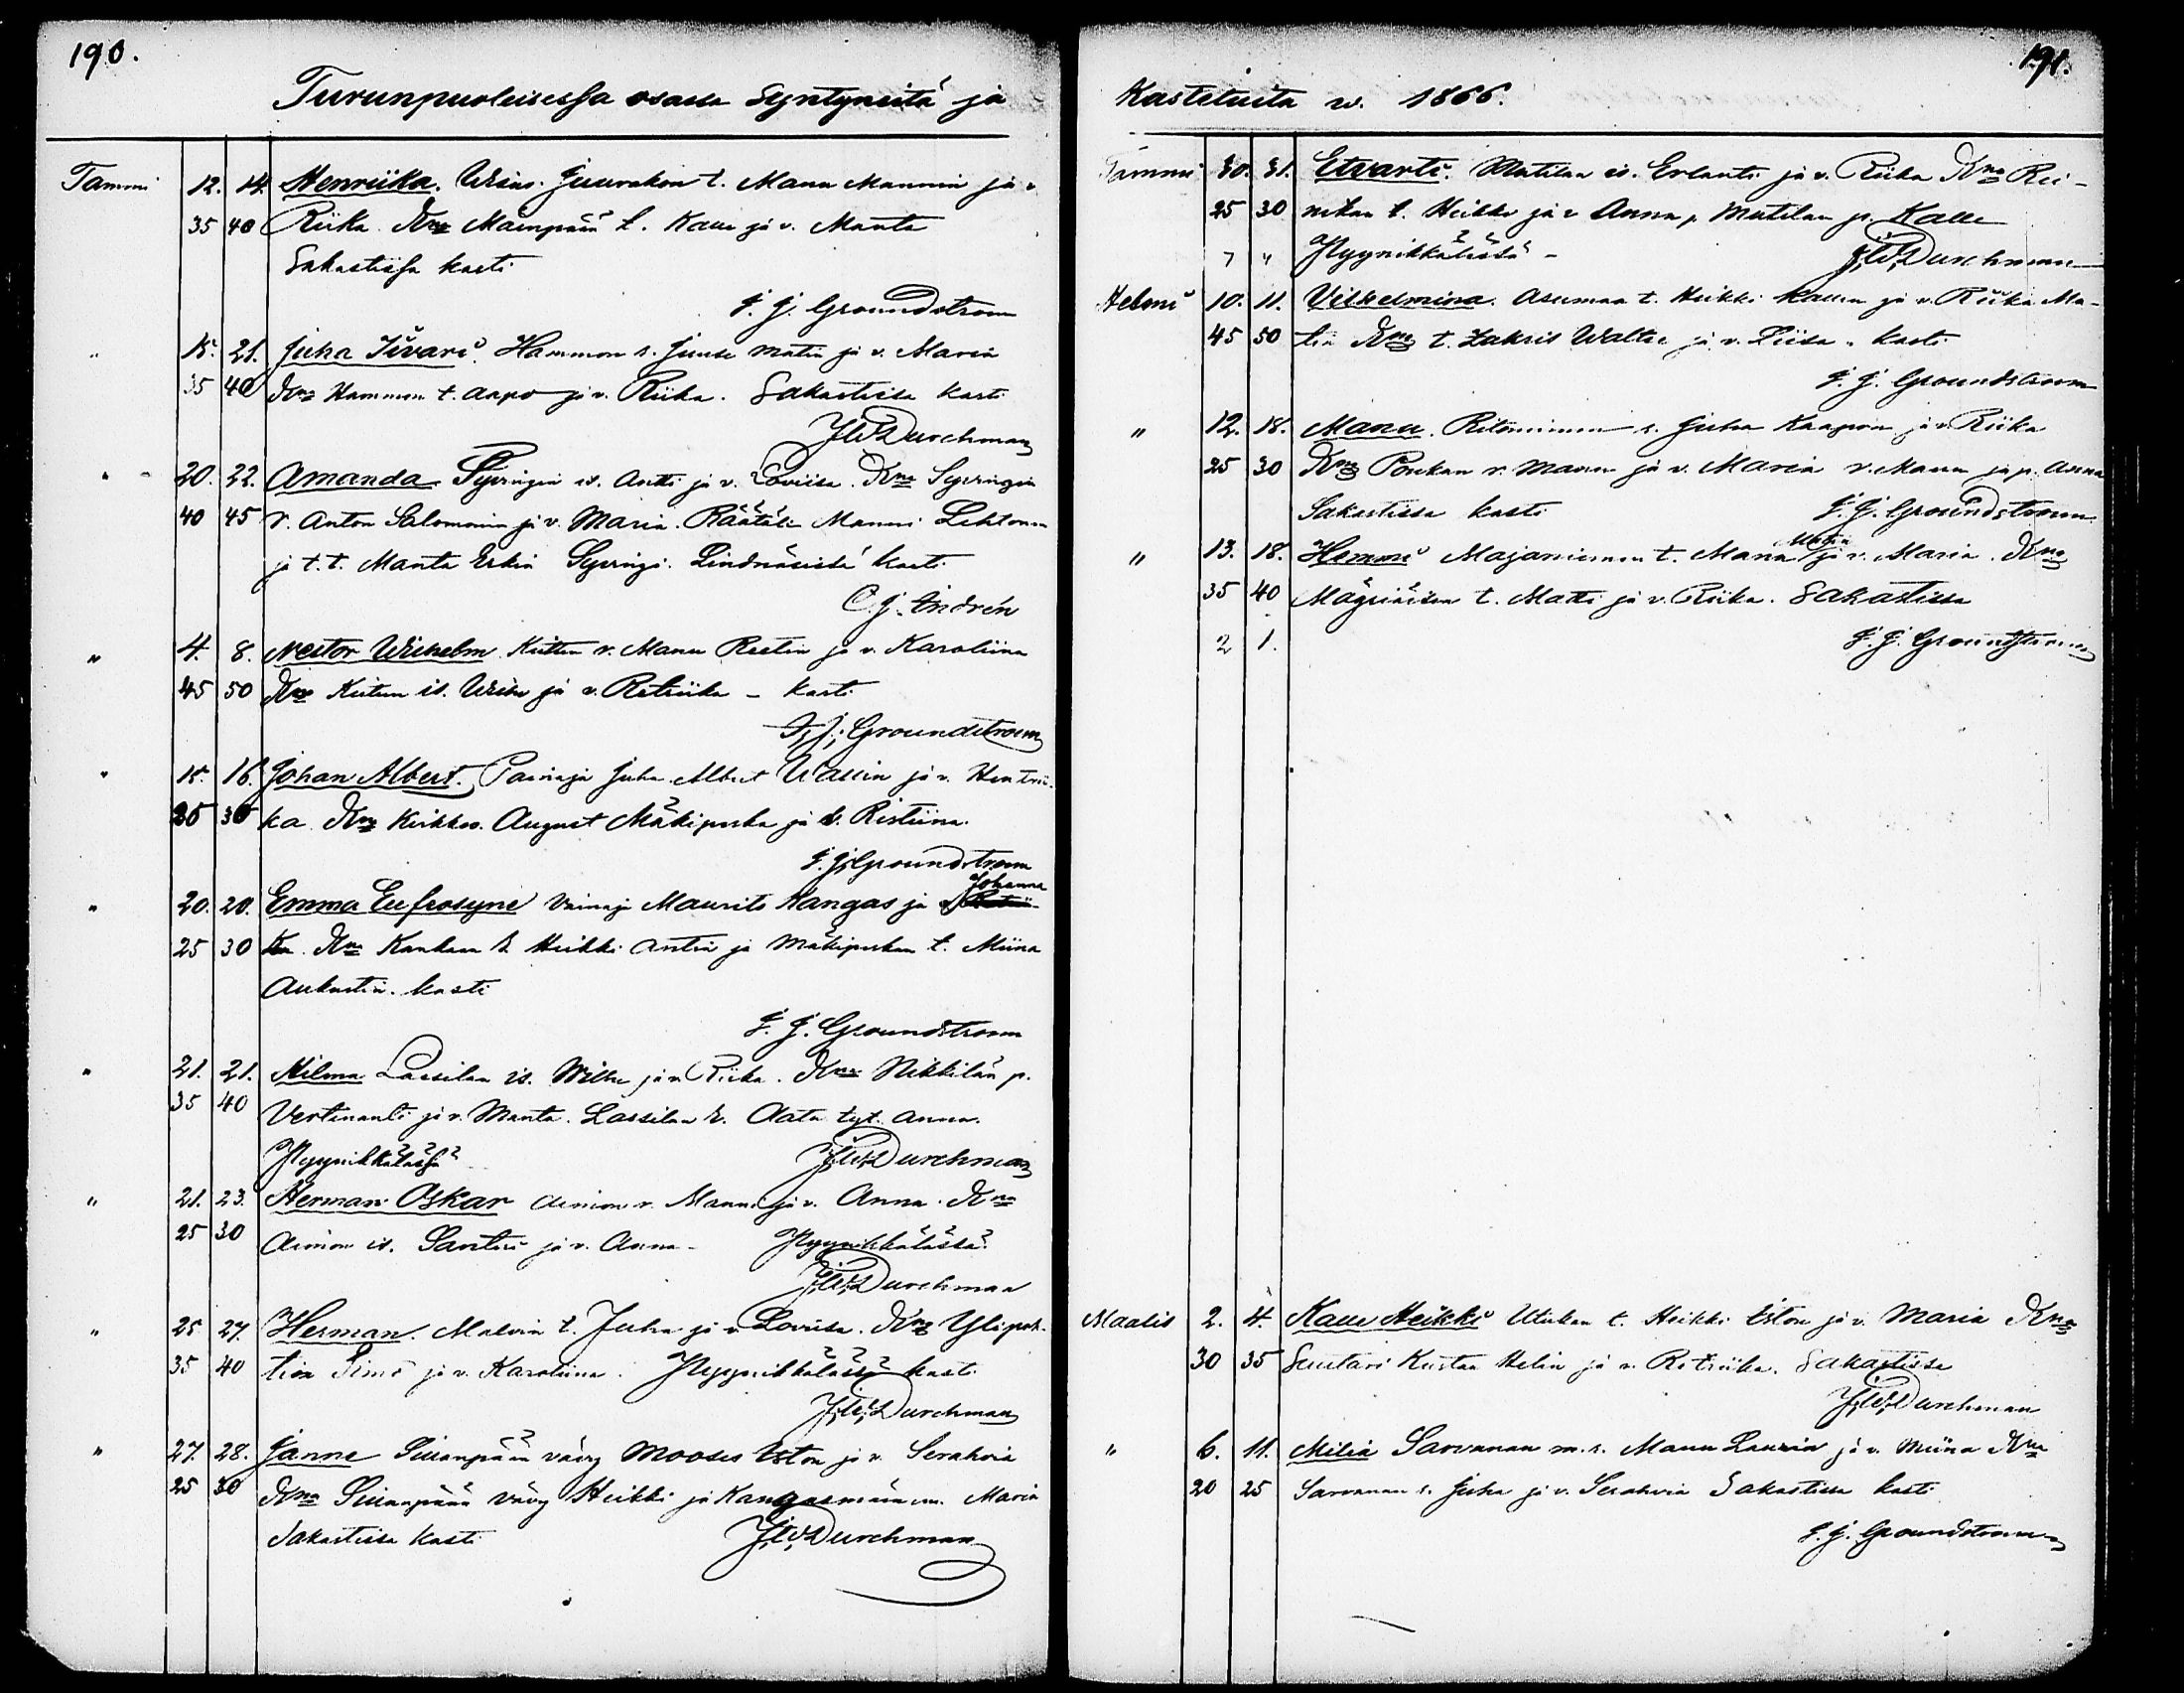 190.
Turunpuoleisessa osassa Syntyneitä ja
Tammi 12. 14. Henriika. Juurakon t. Manu Mannin ja v.
35 40 Riika. Kms Mainpään t. Kalle ja v. Manta
Sakastissa kasti
J. J. Groundstroem
" 15. 21. Juha Iivari. Hammon r. Juuse Matin ja v. Maria
35 40 Kms Hammon t. Aapo ja v. Riika. Sakastissa kasti
J.W. Durchman
" 20. 22. Amanda Syvringin is. Antti ja v. Loviisa. Kms Syvringin
40 45 r. Anton Salomonin ja v. Maria. Räätäli Manni Lehtonen
ja t.t. Manta Erkin Syvringi. Lindnäsistä kasti
C. J. Andrén
" 4. 8. Nestor Wilhelm Kiitun r. Manu Reetin ja v. Karoliina
45 50 Kms Kiitun is. ja v. Retriika - kasti
F. J. Groundstroem
" 15. 16. Johan Albert. Painaja Juha Albert Wallin ja v. Hentrii-
25 30 ka Kms Kirkkov. August Mäkipeska ja v. Ristiina.
J. J. Groundstroem
" 20. 20. Emma Eufrosyne Vainaja Maurits Kangas ja v. Johanna
25 30 Kms Kankaan r. Heikki Antin ja Mäkipeskan t. Miina
Aukustin. kasti
J. J. Groundstroem
" 21. 21. Hilma Lassilan is. Wilhe ja v. Riika. Kms Nikkilän p.
35 40 Vertinanti ja v. Manta. Lassilan r. Aata tyt. Anna.
Hyynikkälässä J.W. Durchman
" 21. 23. Herman Oskar Arnion r. Manu ja v. Anna. Kms
25 30 Arnion is. Santeri ja v. Anna - Hyynikkälässä
J.W. Durchman
" 25 27. Herman. Malvin t. Juha ja v. Loviisa. Kms
35 40 Simo ja v. Karoliina. Hyynikkälässä kasti
J.W. Durchman
" 27. 28. Janne vävy Mooses Eston ja v. Serahvia
25 30 Kms vävy Heikki ja Kangasmäen m. Maria
Sakastissa kasti J.W. Durchman
191.
Kastetuita w. 1866.
Tammi 30. 31. Etvarti. Mutilan is. Erlanti ja v. Riika Kms Rei-
25 30 nikan t. Heikki ja v Anna, Mutilan p. Kalle
7 " Hyynikkälässä - J.W. Durchman
Helmi 10. 11. Vilhelmina. Asuman t. Heikki Kallen ja v. Riika Ma-
45 50 tin Kms t. Zakris Walter ja v. Liisa. Kasti
J. J. Groundstroem
" 12. 18. Manu. Ritoniemen r. Juha Kaapon ja v. Riika
25 30 Kms Poukan r. Manu ja v. Maria r. Manu ja p. Anna
Sakastissa kasti J. J. Groundstroem
" 13. 18. Hemmi Majaniemen t. Manu Matin ja v. Maria. Kms
35 40 t. Matti ja v. Riika. Sakastissa
2 1. J. J. Groundstroem
Maalis 2. 4. Kalle Heikki Utukan t. Heikki Eston ja v. Maria Kms
30 35 Suutari Kustaa Helin ja v. Retriika. Sakastissa
J.W. Durchman
" 6. 11. Milia Sarvanan m. r. Manu Laurin ja v. Miina Kms
20 25 Sarvanan r. Juha ja v. Serahvia Sakastissa kasti
J. J. Groundstroem